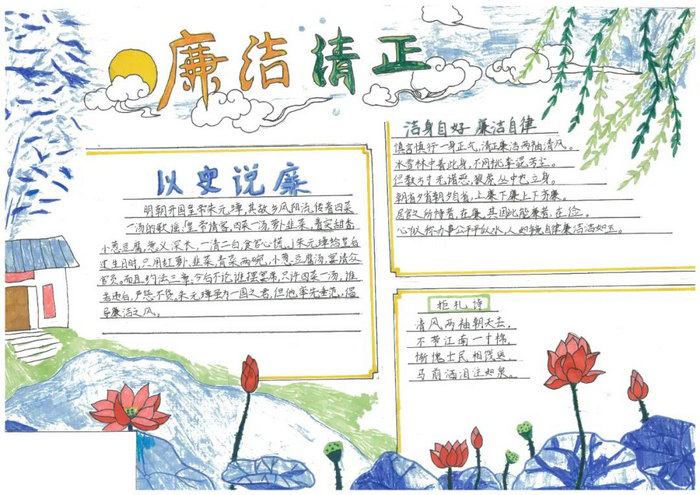 廉洁清正
以史说廉
明朝开国皇帝朱元璋,其故乡凤阳,流传着四菜
一汤的歌谣:皇帝请客,四菜一汤,萝卜韭菜,着实甜香
小葱豆腐,意义深长,一清二白,贪官心慌。朱元璋给皇后
过生日时,只用红萝卜,韭菜,青菜两碗,小葱豆腐汤,宴请众
官员。而且约法三章:今后不论谁摆宴席,只许四菜一汤,谁
若违反,严惩不贷。朱元璋虽为一国之君,但他率先垂范,倡
导廉洁之风。
洁身自好 廉洁自律
慎言慎行一身正气,清正廉洁两袖清风。
朝省夕省朝夕省,上廉下廉上下齐廉。
居官之所恃者,在廉,其因此能廉者,在俭。
拒礼诗
清风两袖朝天去,
不带江南一寸棉。
惭愧士民相饯送,
马前洒泪注如泉。